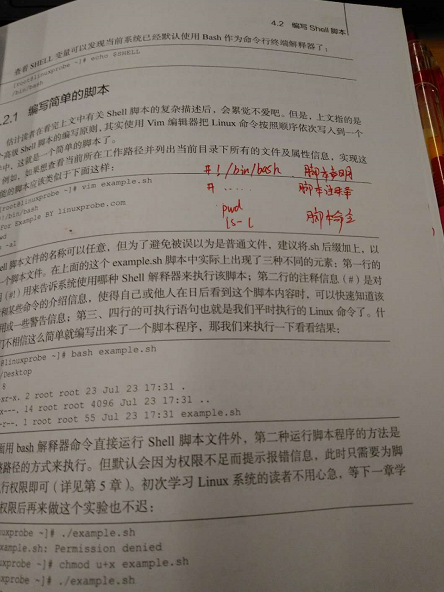 4.2 编写 Shell 脚本
查看 SHELL 变量可以发现当前系统已经默认使用 Bash 作为命令行终端解释器了：
linuxprobe ~]# echo $SHELL
/bin/bash
2.1 编写简单的脚本
估计读者在看完上文中有关 Shell 脚本的复杂描述后，会累觉不爱吧。但是，上文指的是
高级 Shell 脚本的编写原则，其实使用 Vim 编辑器把 Linux 命令按照顺序依次写入到一个
中，这就是一个简单的脚本了。
例如，如果想查看当前所在工作路径并列出当前目录下所有的文件及属性信息，实现这
能的脚本应该类似于下面这样：
#!/bin/bash 脚本声明
root@linuxprobe ~]# vim example.sh
#..... 脚本注释
!/bin/bash
For Example BY linuxprobe.com
pwd
ls-l 脚本命令
-al
ell 脚本文件的名称可以任意，但为了避免被误以为是普通文件，建议将.sh 后缀加上，以
一个脚本文件。在上面的这个 example.sh 脚本中实际上出现了三种不同的元素：第一行的
(#!) 用来告诉系统使用哪种 Shell 解释器来执行该脚本；第二行的注释信息（#）是对
和某些命令的介绍信息，使得自己或他人在日后看到这个脚本内容时，可以快速知道该
作用或一些警告信息；第三、四行的可执行语句也就是我们平时执行的 Linux 命令了。什
们不相信这么简单就编写出来了一个脚本程序，那我们来执行一下看看结果：
linuxprobe ~]# bash example.sh
/Desktop
8
xr-x. 2 root root 23 Jul 23 17:31 .
x---. 14 root root 4096 Jul 23 17:31 ..
r--. 1 root root 55 Jul 23 17:31 example.sh
面用 bash 解释器命令直接运行 Shell 脚本文件外，第二种运行脚本程序的方法是
整路径的方式来执行。但默认会因为权限不足而提示报错信息，此时只需要为脚
行权限即可（详见第 5 章）。初次学习 Linux 系统的读者不用心急，等下一章学
权限后再来做这个实验也不迟：
uxprobe ~]# ./example.sh
xample.sh: Permission denied
xprobe ~]# chmod u+x example.sh
xprobe ~]# ./example.sh